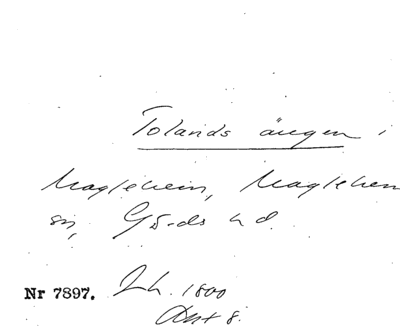 Tolands ängen i
Maglehem, Maglehem
sn, Gärds hd.
Nr 7897. Lh. 1800
Akt 8.